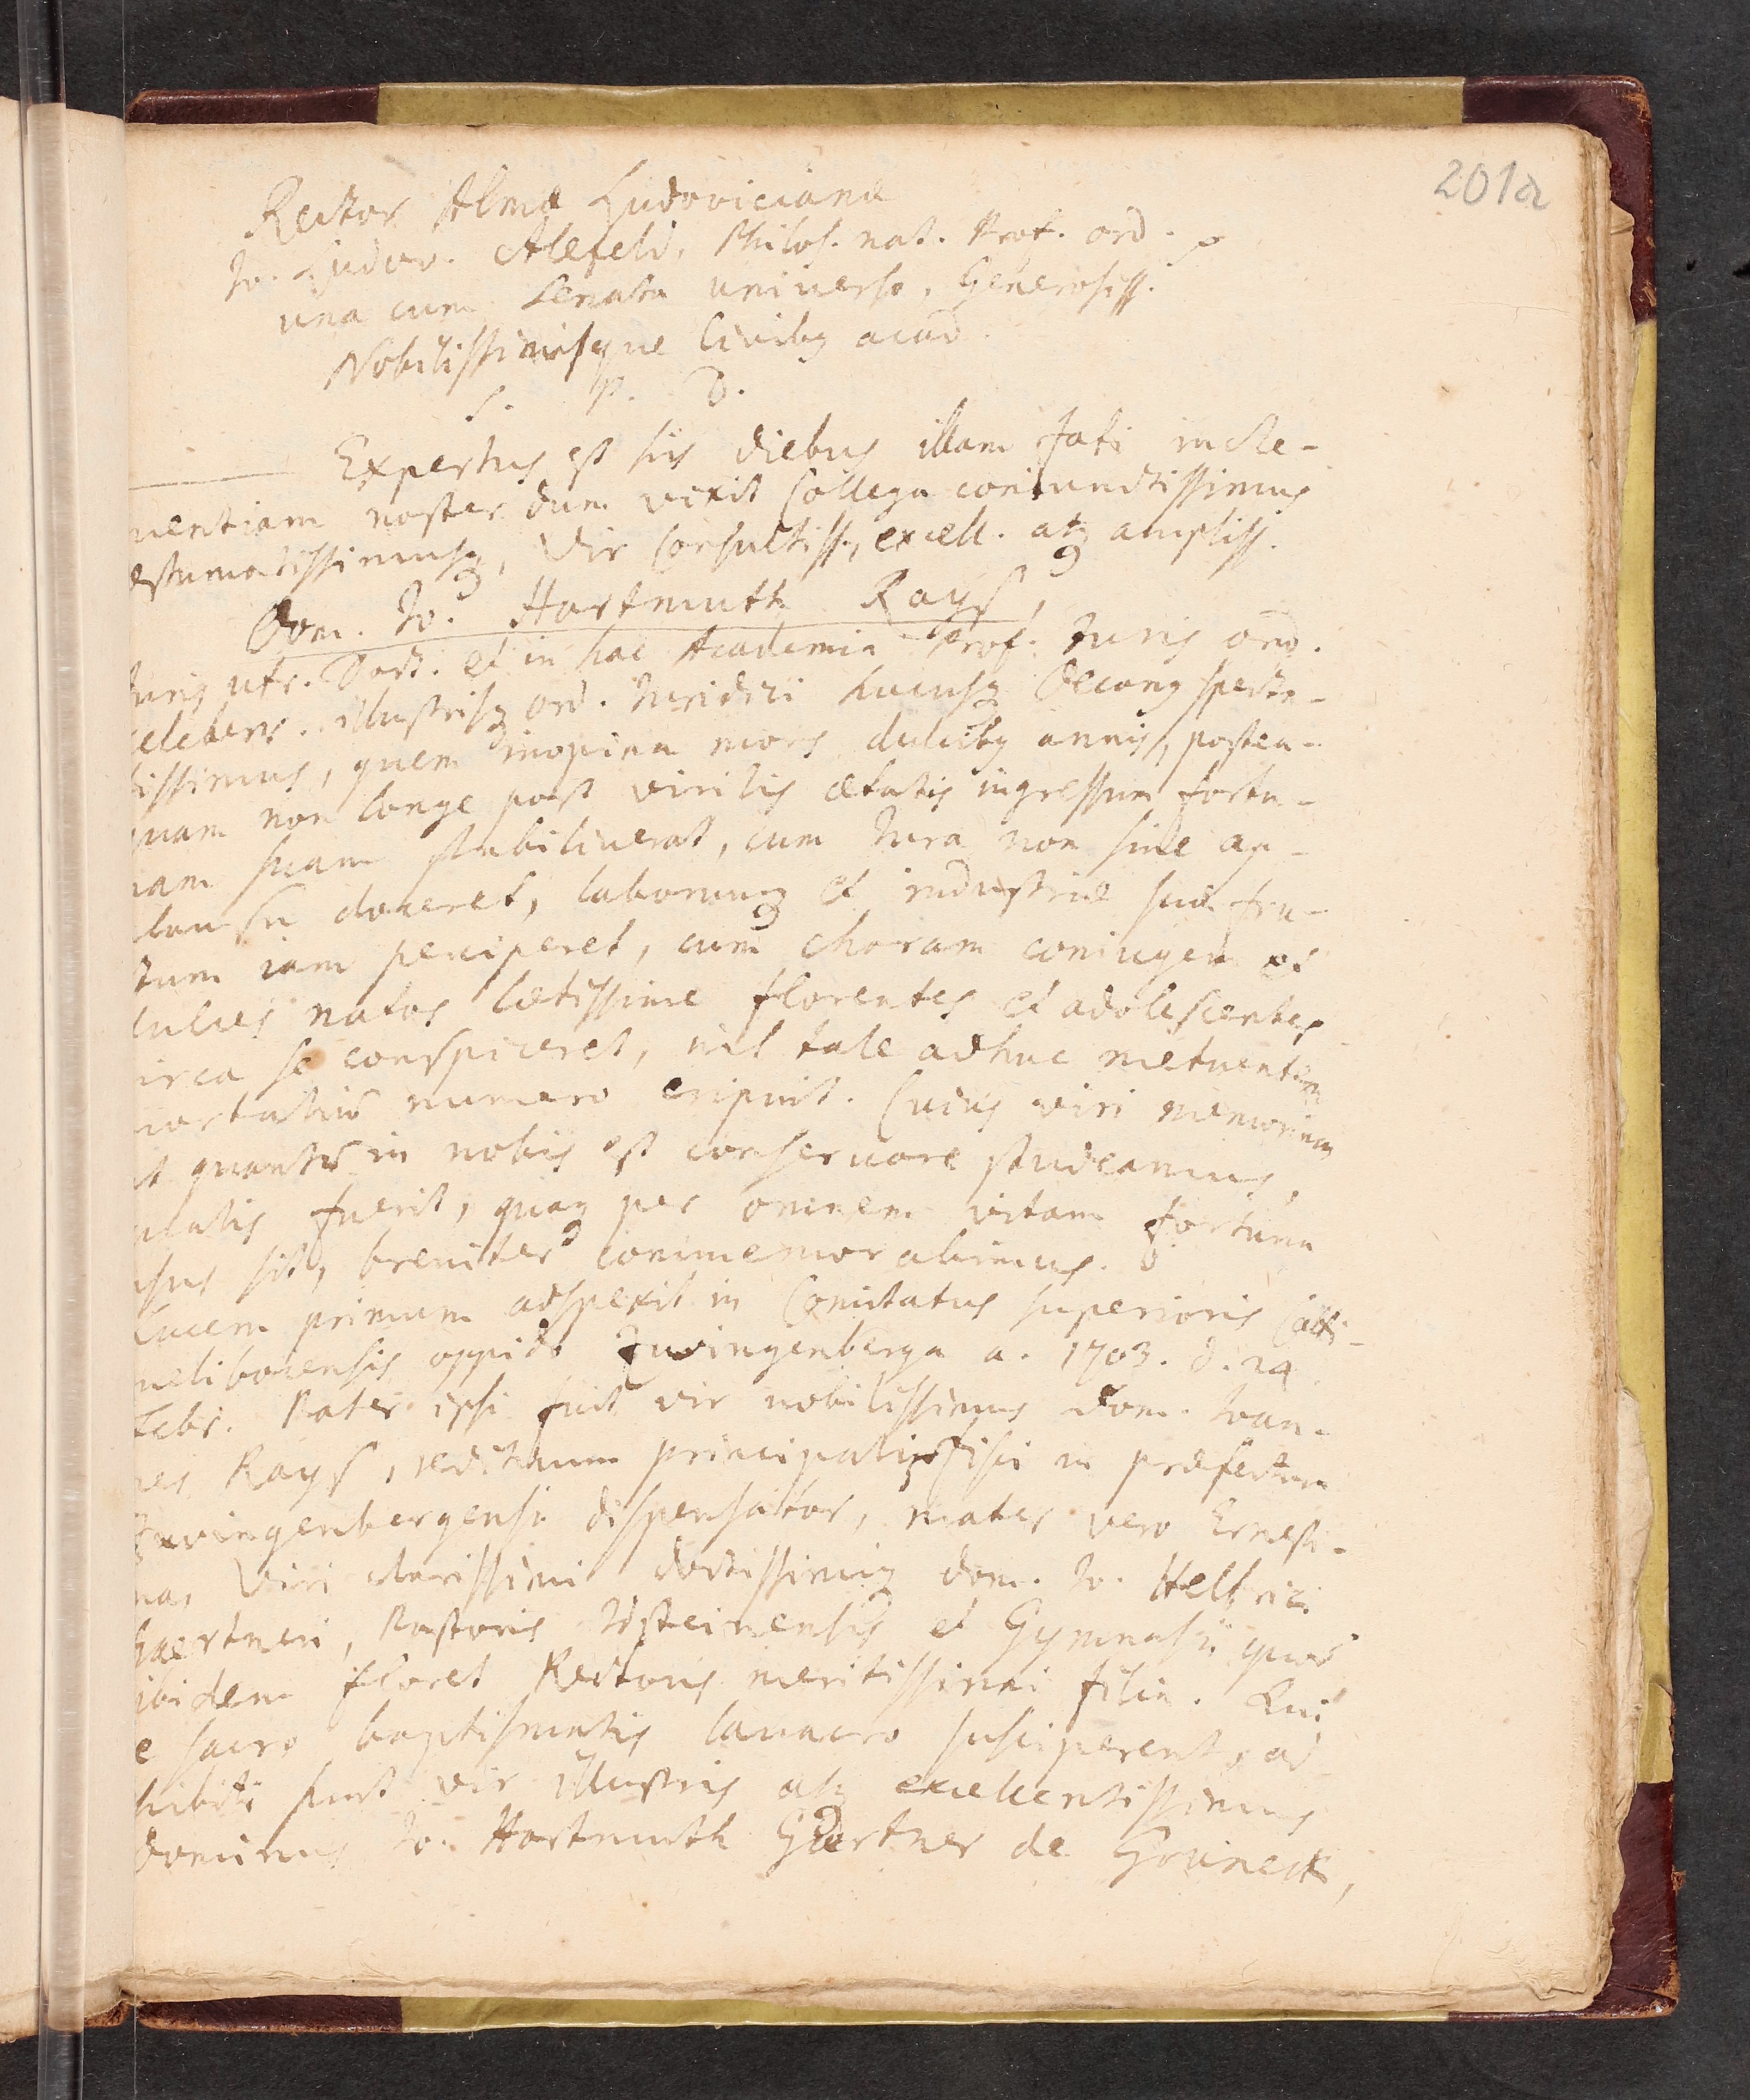 201a
Rector Almæ Ludovicianæ
Jo. Ludov. Alefeld, Philos. nat. Prof. ord.
una cum Senatu universo, Generosiss.
Nobilissimisque Civibꝫ acad.
S. P. D.
Expertus est his diebus illam fati incle-
mentiam noster dum vixit Collega coniunctissimus
æstumatissimusqꝫ, Vir Consultiss., excell. atqꝫ ampliss.
Dom. Jo. Hartmuth Rayß,
Juris utr. Doct. et in hac Academia Prof. Juris ord.
celeberr. illustrisqꝫ ord. Juridici hucusqꝫ Decanꝫ specta-
tissimus, quem inopina mors dulcibꝫ annis, postea-
quam non longe post virilis ætatis ingressum fortu-
nam suam stabiliverat, cum Jura non sine ap-
plausu doceret, laborumqꝫ et industriæ suæ fru-
ctum iam perciperet, cum charam coniugem et
dulces natos lætissime florentes et adolescentes
circa se conspiceret, nil tale adhuc metuentem
mortaliũ numero eripuit. Cuius viri memoriam
ut quantũ in nobis est conservare studeamus,
qualis fuerit, quaqꝫ per omnem vitam fortuna
usus sit, breviter commemorabimus.
Lucem primum adspexit in Comitatus superioris Catti-
melibocensis oppido Zwingenberga a. 1703. d. 24
Febr. Pater ipsi fuit vir nobilissimus Dom. Joan-
nes Rayß, redituum principalis Fisci in præfectura
Zwingenbergensi dispensator, mater vero Ernesti-
na, Viri clarissimi doctissimiqꝫ Dom. Jo. Helfrici
Gaertneri, Pastoris Idsteinensis et Gymnasii quod
ibidem floret Rectoris meritissimi filia. Qui
e sacro baptismatis lavacro susciperent, ad
hibiti sunt vir illustris atqꝫ excellentissimus
dominus Jo. Hartmuth Gærtner de Grüneck,